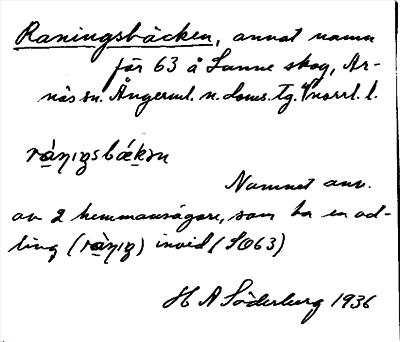 Raningsbäcken, annat namn
för 63 å Sanne skog, Ar-
näs sn. Ångerml. n. doms. tg. Vnorrl. l.
Namnet anv.
av 2 hemmansägare, som ha en od-
ling () invid (SO63)
H A Söderberg 1936